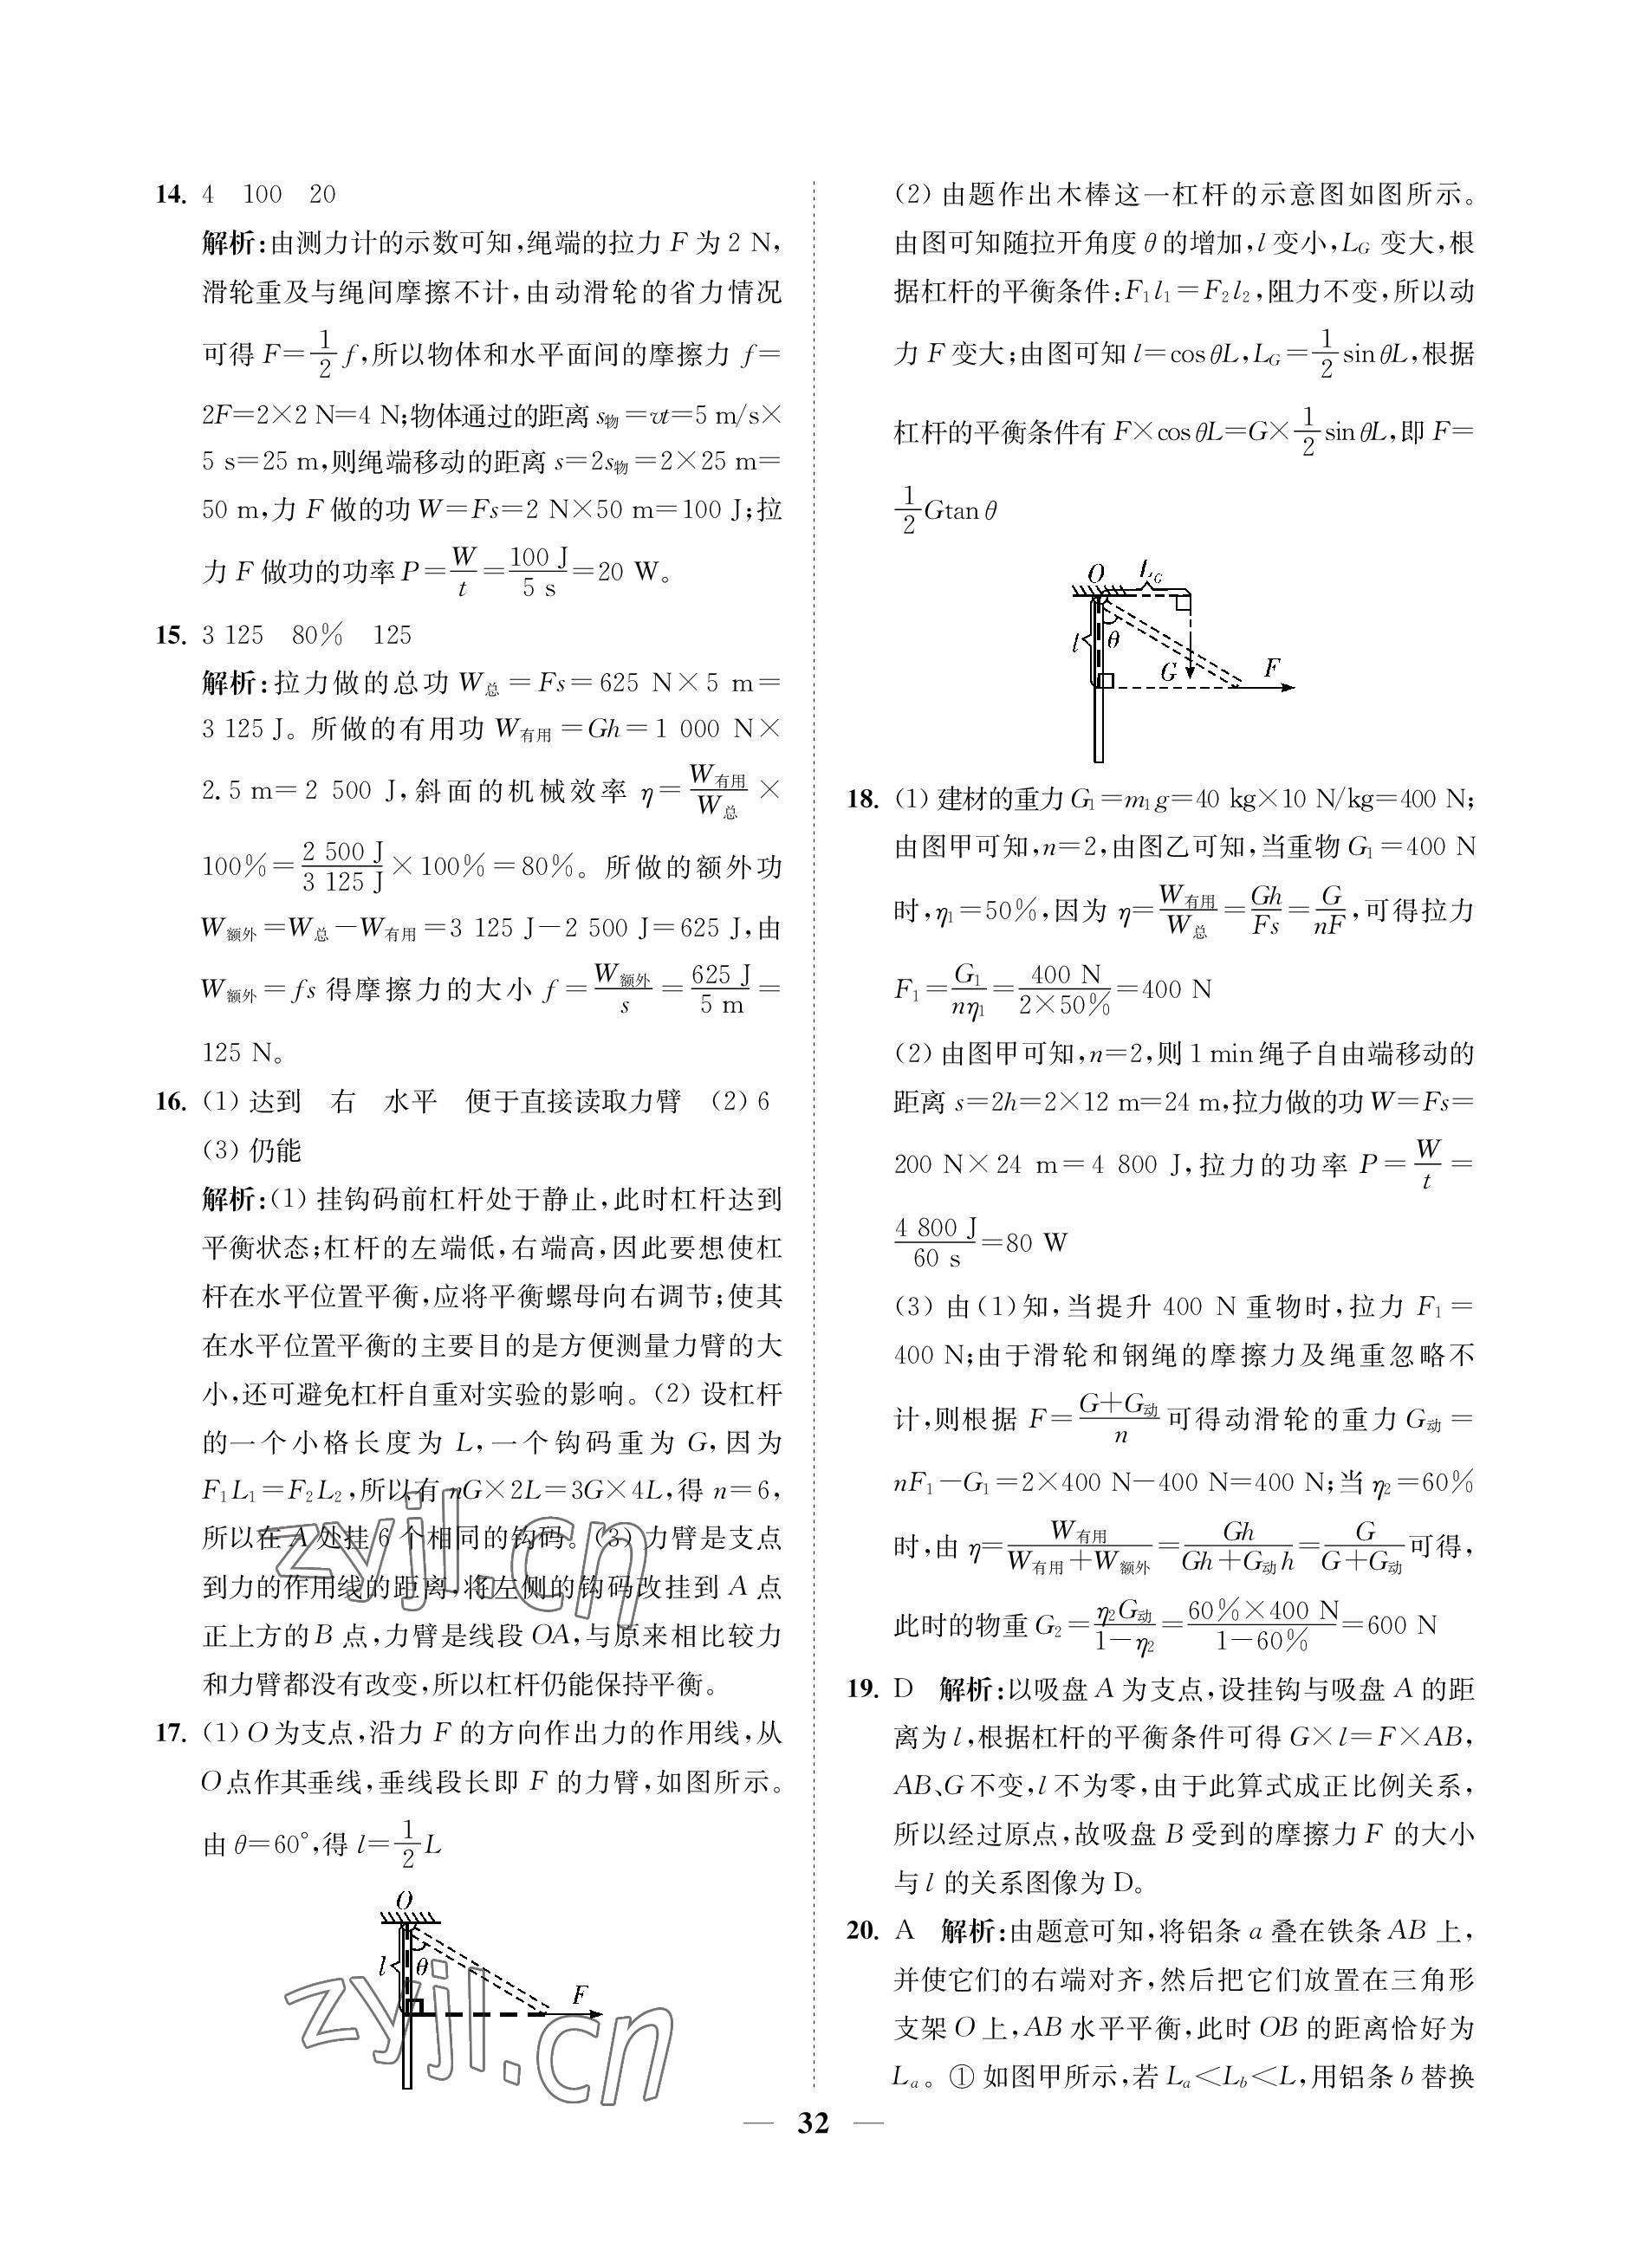 14. 4　100　20
解析:由测力计的示数可知,绳端的拉力 F 为 2 N,
滑轮重及与绳间摩擦不计,由动滑轮的省力情况
可得 F=1/2 f,所以物体和水平面间的摩擦力 f=
2F=2×2 N=4 N;物体通过的距离 s物=vt=5 m/s×
5 s=25 m,则绳端移动的距离 s=2s物=2×25 m=
50 m,力 F 做的功 W=Fs=2 N×50 m=100 J;拉
力 F 做功的功率 P=W/t=100 J/5 s=20 W。
15. 3 125　80%　125
解析:拉力做的总功 W总=Fs=625 N×5 m=
3 125 J。所做的有用功 W有用=Gh=1 000 N×
2.5 m=2 500 J,斜面的机械效率 η=W有用/W总×
100%=2 500 J/3 125 J×100%=80%。所做的额外功
W额外=W总-W有用=3 125 J-2 500 J=625 J,由
W额外=fs 得摩擦力的大小 f=W额外/s=625 J/5 m=
125 N。
16. (1) 达到　右　水平　便于直接读取力臂　(2) 6
(3) 仍能
解析:(1) 挂钩码前杠杆处于静止,此时杠杆达到
平衡状态;杠杆的左端低,右端高,因此要想使杠
杆在水平位置平衡,应将平衡螺母向右调节;使其
在水平位置平衡的主要目的是方便测量力臂的大
小,还可避免杠杆自重对实验的影响。(2) 设杠杆
的一个小格长度为 L,一个钩码重为 G,因为
F₁L₁=F₂L₂,所以有 nG×2L=3G×4L,得 n=6,
所以在 A 处挂 6 个相同的钩码。(3) 力臂是支点
到力的作用线的距离,将左侧的钩码改挂到 A 点
正上方的 B 点,力臂是线段 OA,与原来相比较力
和力臂都没有改变,所以杠杆仍能保持平衡。
17. (1) O 为支点,沿力 F 的方向作出力的作用线,从
O 点作其垂线,垂线段长即 F 的力臂,如图所示。
由 θ=60°,得 l=1/2 L
O
l
θ
F
zyjl.cn
zyjl.cn
(2) 由题作出木棒这一杠杆的示意图如图所示。
由图可知随拉开角度 θ 的增加,l 变小,L_G 变大,根
据杠杆的平衡条件:F₁l₁=F₂l₂,阻力不变,所以动
力 F 变大;由图可知 l=cos θL,L_G=1/2 sin θL,根据
杠杆的平衡条件有 F×cos θL=G×1/2 sin θL,即 F=
1/2 Gtan θ
O L_G
l θ
G F
18. (1) 建材的重力 G₁=m₁g=40 kg×10 N/kg=400 N;
由图甲可知,n=2,由图乙可知,当重物 G₁=400 N
时,η₁=50%,因为 η=W有用/W总=Gh/Fs=G/nF,可得拉力
F₁=G₁/nη₁=400 N/2×50%=400 N
(2) 由图甲可知,n=2,则 1 min 绳子自由端移动的
距离 s=2h=2×12 m=24 m,拉力做的功 W=Fs=
200 N×24 m=4 800 J,拉力的功率 P=W/t=
4 800 J/60 s=80 W
(3) 由(1)知,当提升 400 N 重物时,拉力 F₁=
400 N;由于滑轮和钢绳的摩擦力及绳重忽略不
计,则根据 F=G+G动/n 可得动滑轮的重力 G动=
nF₁-G₁=2×400 N-400 N=400 N;当 η₂=60%
时,由 η=W有用/W有用+W额外=Gh/Gh+G动h=G/G+G动 可得,
此时的物重 G₂=η₂G动/1-η₂=60%×400 N/1-60%=600 N
19. D　解析:以吸盘 A 为支点,设挂钩与吸盘 A 的距
离为 l,根据杠杆的平衡条件可得 G×l=F×AB,
AB、G 不变,l 不为零,由于此算式成正比例关系,
所以经过原点,故吸盘 B 受到的摩擦力 F 的大小
与 l 的关系图像为 D。
20. A　解析:由题意可知,将铝条 a 叠在铁条 AB 上,
并使它们的右端对齐,然后把它们放置在三角形
支架 O 上,AB 水平平衡,此时 OB 的距离恰好为
Lₐ。① 如图甲所示,若 Lₐ<L_b<L,用铝条 b 替换
— 32 —